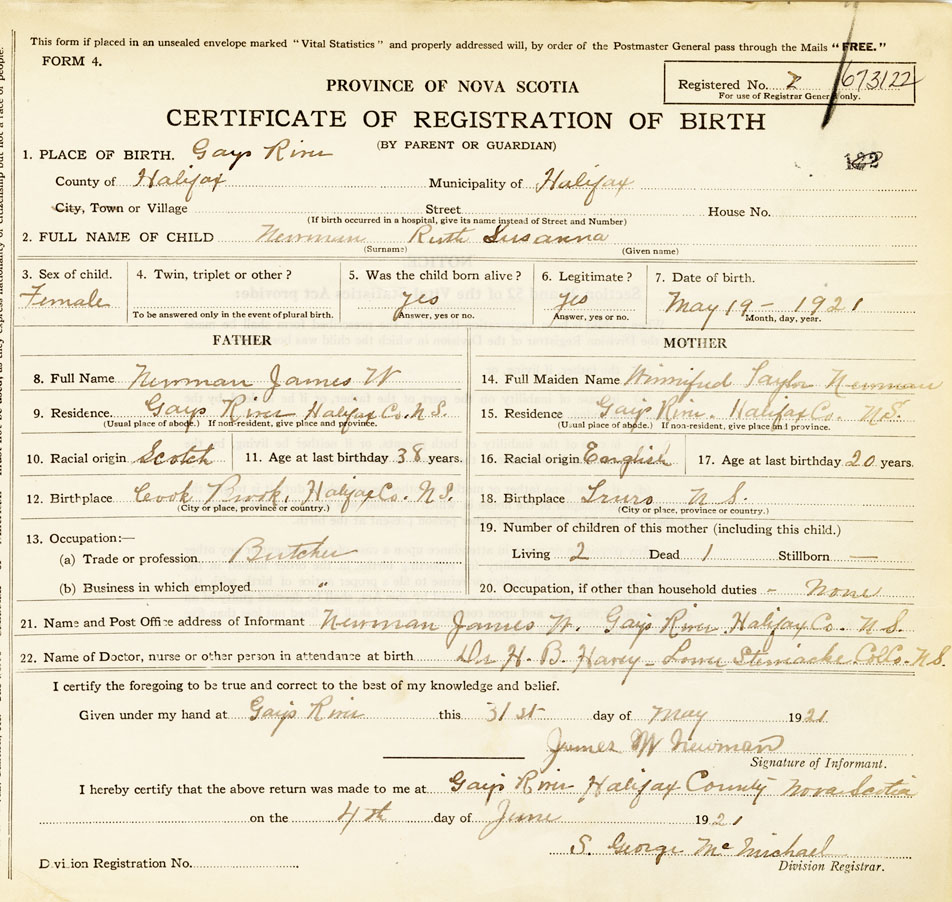 This form if placed in an unsealed envelope marked "Vital Statistics" and properly addressed will, by order of the Postmaster General pass through the Mails "FREE."
FORM 4.
PROVINCE OF NOVA SCOTIA
Registered No. 2 673122
For use of Registrar General only.
CERTIFICATE OF REGISTRATION OF BIRTH
(BY PARENT OR GUARDIAN)
122
1. PLACE OF BIRTH. Gays River
County of Halifax Municipality of Halifax
City, Town or Village Street House No.
(If birth occurred in a hospital, give its name instead of Street and Number)
2. FULL NAME OF CHILD Newman Ruth Susanna
(Surname) (Given name)
3. Sex of child. 4. Twin, triplet or other? 5. Was the child born alive? 6. Legitimate? 7. Date of birth.
Female yes yes May 19 - 1921
To be answered only in the event of plural birth. Answer, yes or no. Answer, yes or no. Month, day, year.
FATHER MOTHER
8. Full Name Newman James W 14. Full Maiden Name Winnifred Taylor Newman
9. Residence. Gays River Halifax Co. N.S. 15. Residence Gays River. Halifax Co. N.S.
(Usual place of abode.) If non-resident, give place and province. (Usual place of abode.) If non-resident, give place and province.
10. Racial origin Scotch 11. Age at last birthday 38 years. 16. Racial origin English 17. Age at last birthday 20 years.
12. Birthplace Cook Brook, Halifax Co. N.S. 18. Birthplace Truro N.S.
(City or place, province or country.) (City or place, province or country.)
13. Occupation:— 19. Number of children of this mother (including this child.)
(a) Trade or profession Butcher Living 2 Dead 1 Stillborn —
(b) Business in which employed " 20. Occupation, if other than household duties - None
21. Name and Post Office address of Informant Newman James W. Gays River Halifax Co. N.S.
22. Name of Doctor, nurse or other person in attendance at birth Dr H. B. Havey - Lower Stewiacke Col Co. N.S.
I certify the foregoing to be true and correct to the best of my knowledge and belief.
Given under my hand at Gays River this 31st day of May 1921
James W Newman
Signature of Informant.
I hereby certify that the above return was made to me at Gays River Halifax County Nova Scotia
on the 4th day of June 1921
S. George McMichael
Division Registration No. Division Registrar.